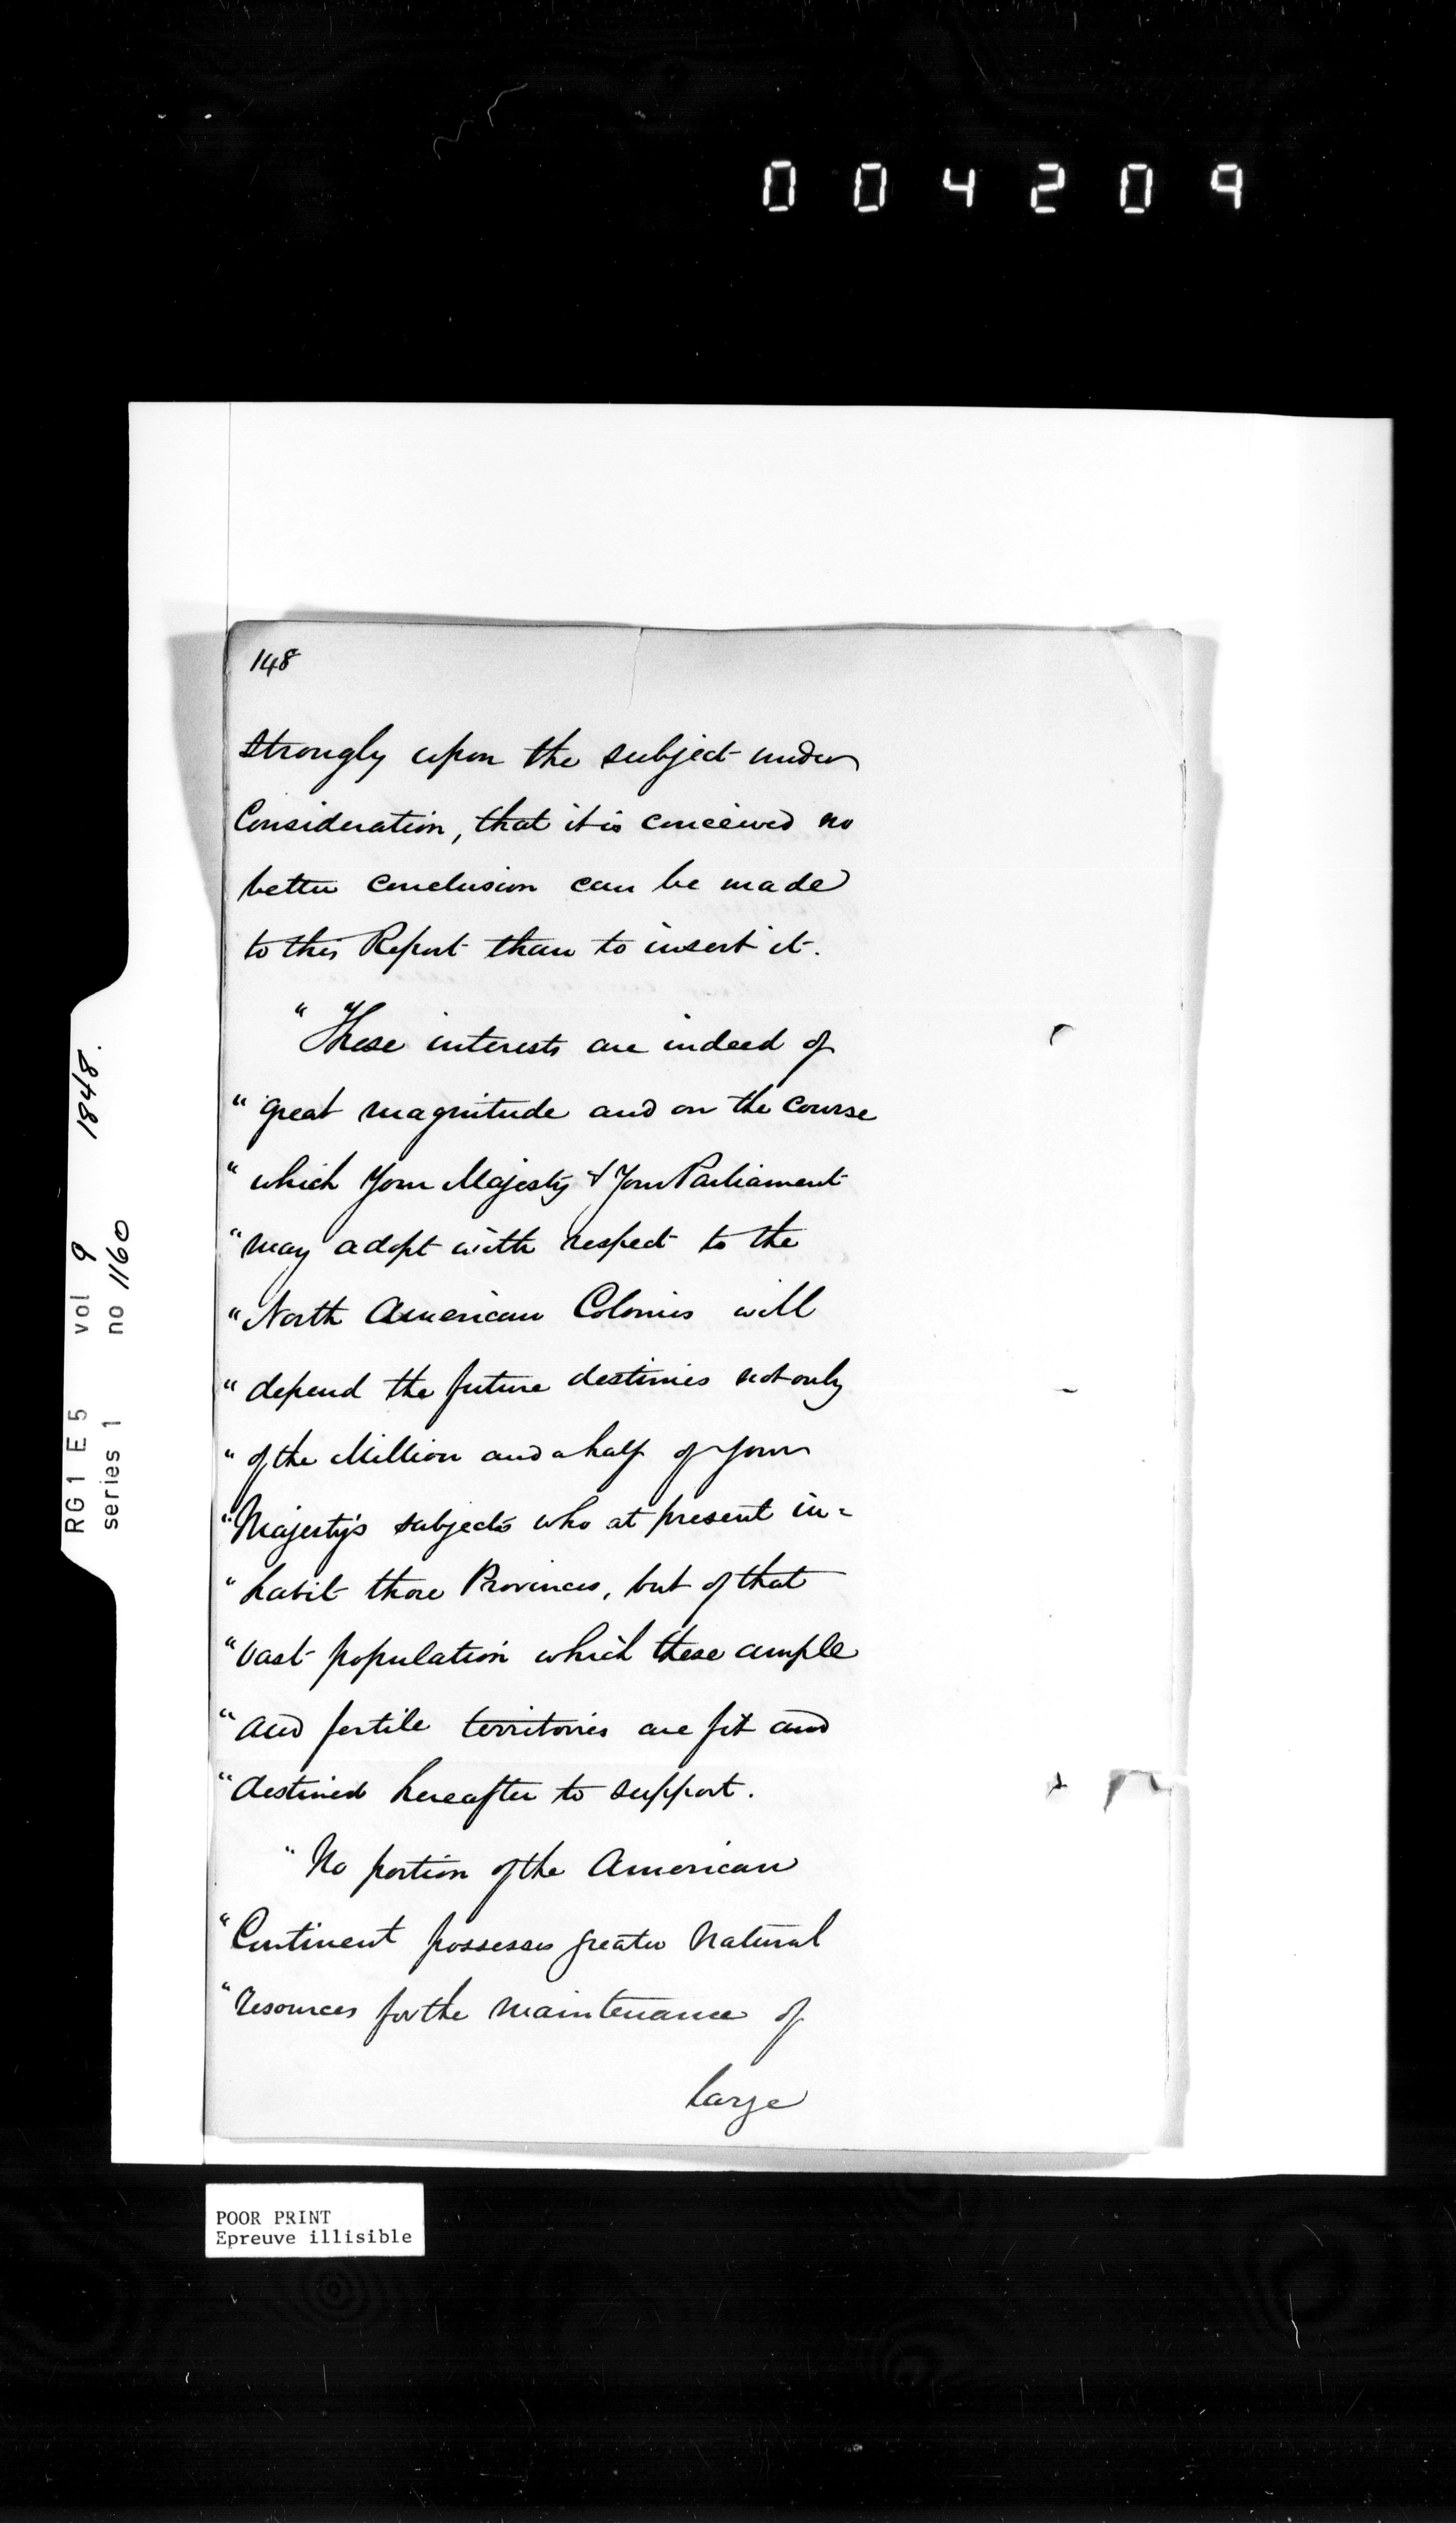 004209
148
strongly upon the subject under
Consideration, that it is conceived no
better conclusion can be made
to this Report than to insert it.
"These interests are indeed of
"great magnitude and on the course
"which Your Majesty & Your Parliament
"may adopt with respect to the
"North American Colonies will
"depend the future destinies not only
"of the Million and a half of Your
"Majesty's subjects who at present in=
"habit those Provinces, but of that
"vast population which these ample
"and fertile territories are fit and
"destined hereafter to support.
"No portion of the American
"Continent possesses greater Natural
"resources for the maintenance of
large
RG1 E5 vol 9 1848.
series 1 no 1160
POOR PRINT
Epreuve illisible